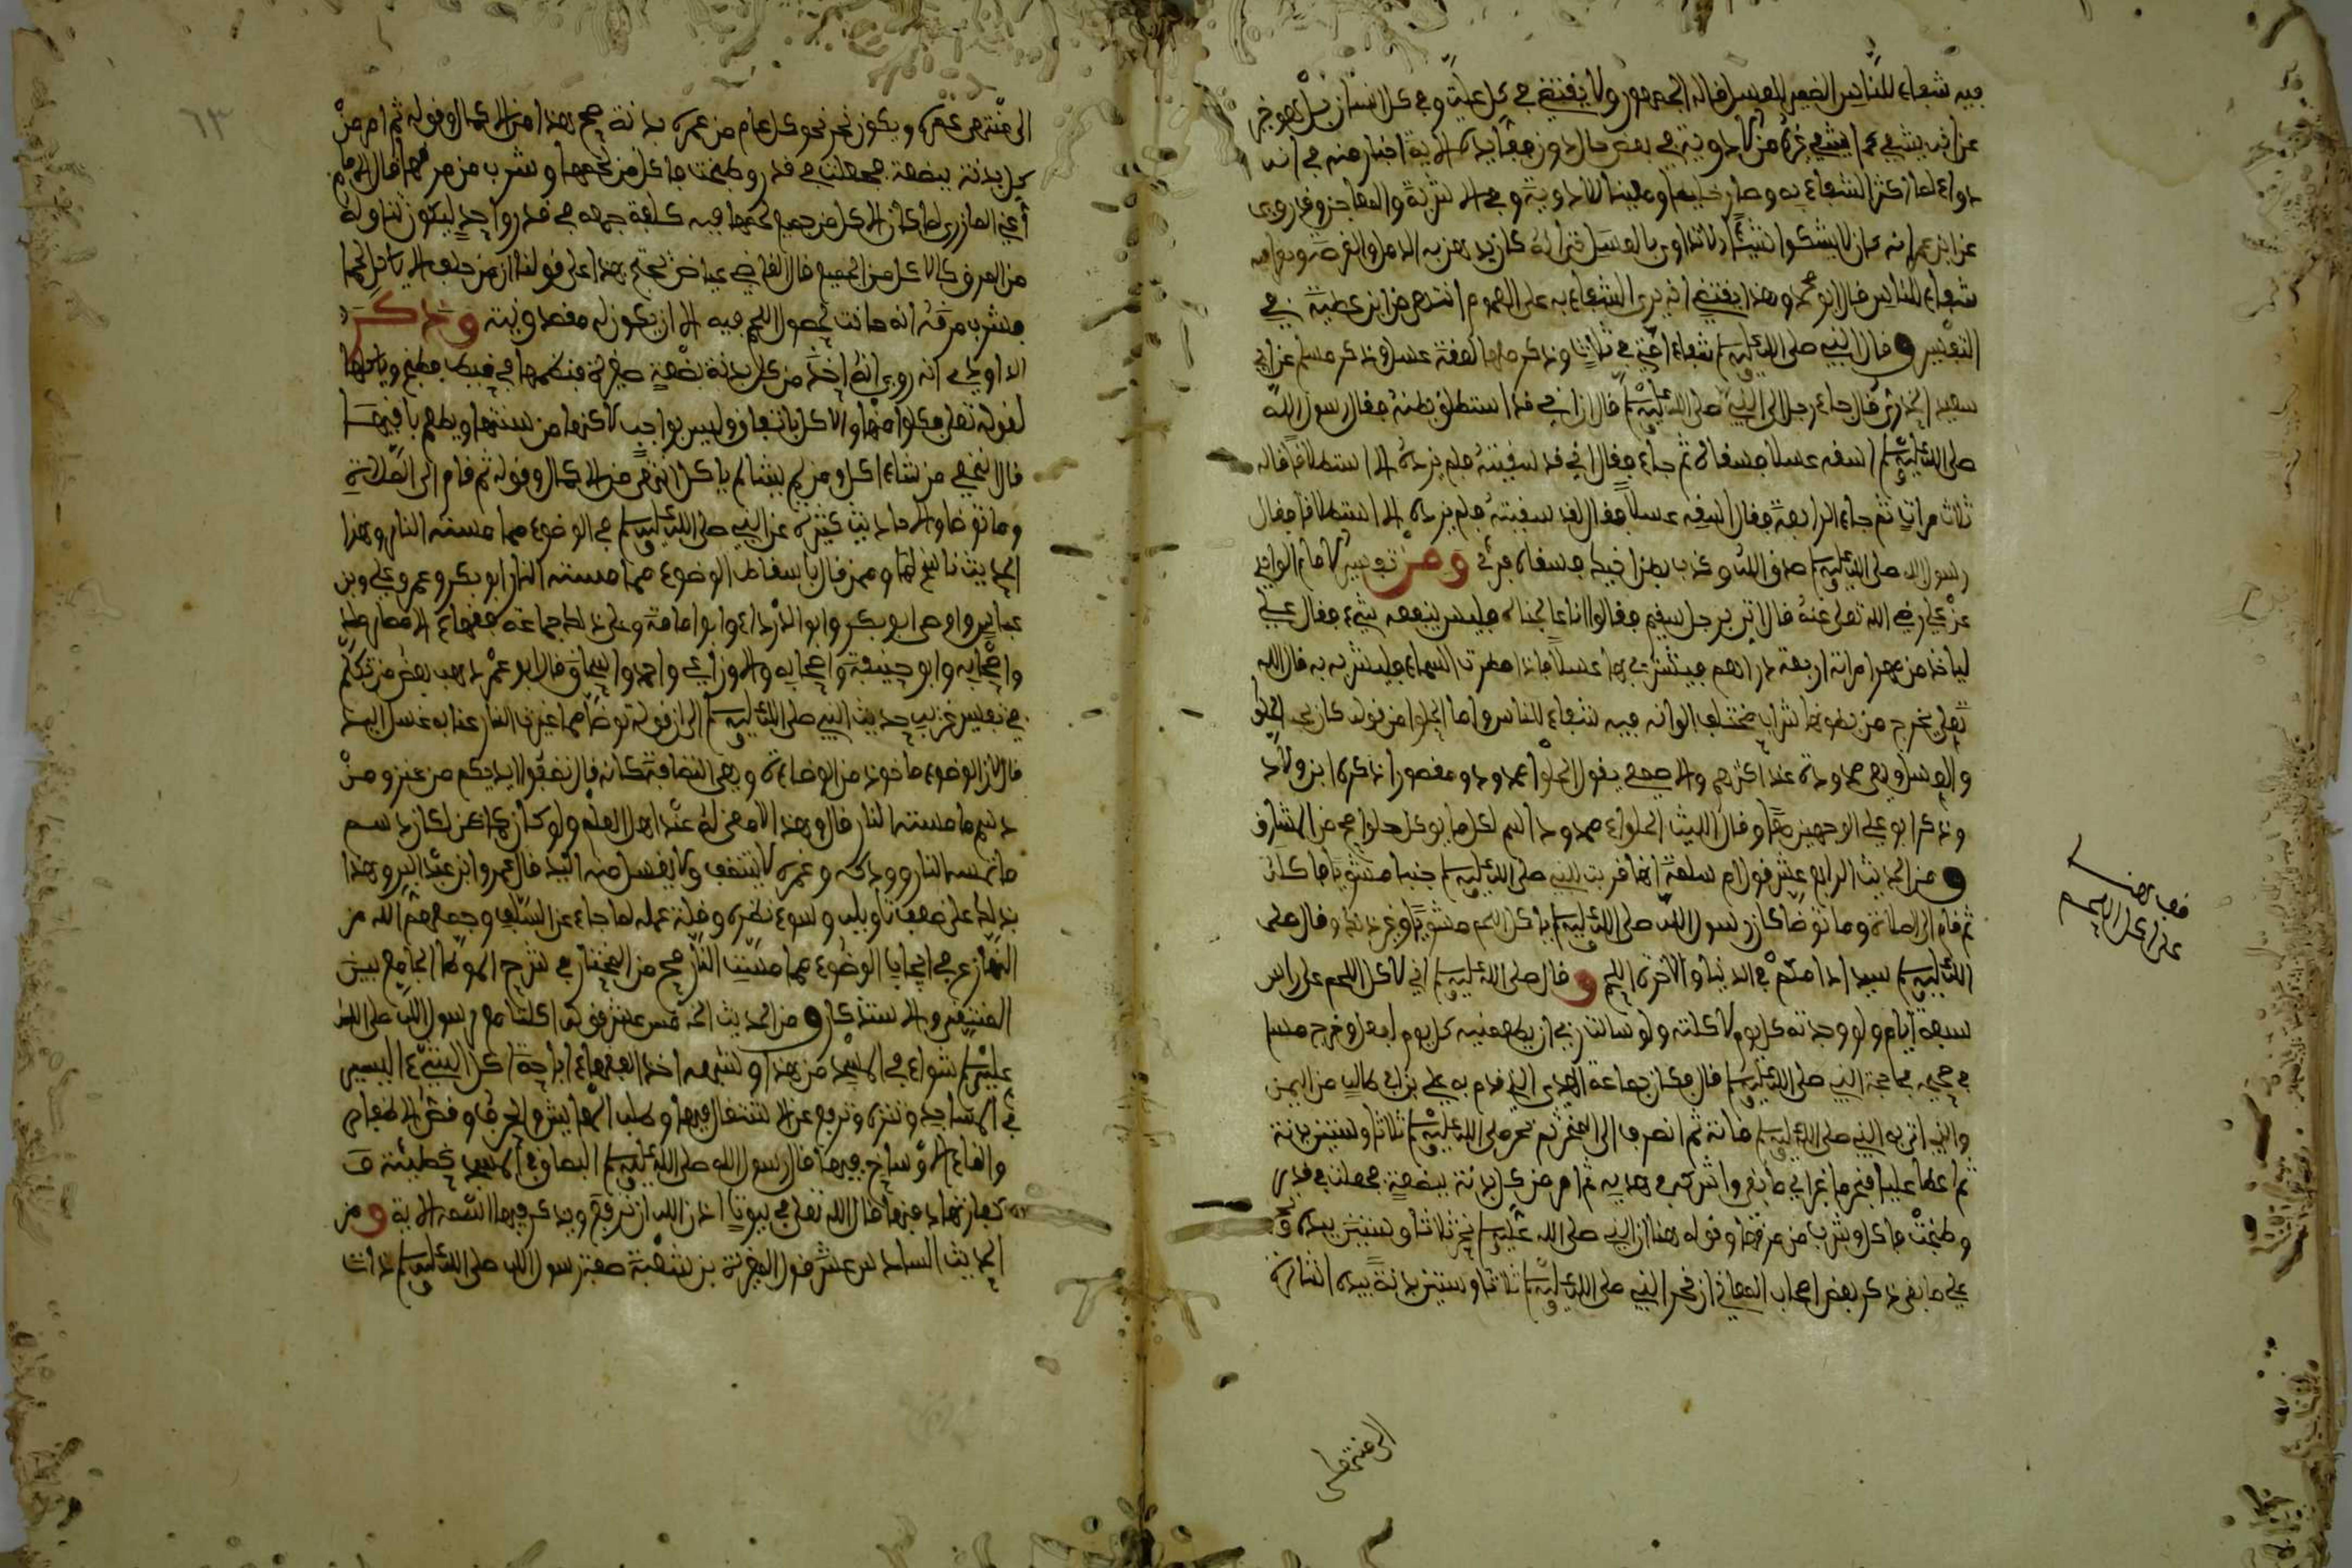 فيه شفاء للناس الضمير للعسل قاله الجمهور ولا يقتضي في كل علة وفي كل انسان بل هو خبر
عن انه يشفي كما يشفي غيره من الادوية في بعض حال دون حال الاية اخبار منه في انه
دواء لما كثر الشفاء به وصار خليطا ومعينا للادوية وفي الاشربة والمعاجن وقد روى
عن ابن عمر انه كان لا يشكو شيئا الا تداوى بالعسل حتى انه كان يدهن به الدمل والقرصة ويقرا فيه
شفاء للناس قال ابو محمد وهذا يقتضي انه يرى الشفاء به على العموم انتهى من ابن عطية في
التفسير وقال النبي صلى الله عليه وسلم شفاء امتي في ثلاث وذكر منها لعقة عسل وذكر مسلم عن ابي
سعيد الخدري قال جاء رجل الى النبي صلى الله عليه وسلم قال ان اخي قد استطلق بطنه فقال رسول الله
صلى الله عليه وسلم اسقه عسلا فسقاه ثم جاء فقال اني قد سقيته فلم يزده الا استطلاقا قاله
ثلاث مرات ثم جاء الرابعة فقال اسقه عسلا فقال لقد سقيته فلم يزده الا استطلاقا فقال
رسول الله صلى الله عليه وسلم صدق الله وكذب بطن اخيك فسقاه فبرئ ومن تفسير الامام الواحدي
عن علي رضي الله تعلى عنه قال اتى برجل سقيم فقالوا انا عالجناه فليس ينفعه شيء فقال علي
لياخذ من مهر امراته اربعة دراهم فيشتري بها عسلا فاذا مطرت السماء فليشربه به قال الله
تعلى يخرج من بطونها شراب مختلف الوانه فيه شفاء للناس واما الحلوا من قوله كان يحب الحلوا
والعسل وهي ممدودة عند اكثرهم والاصمعي يقول الحلوا ممدود ومقصور ذكره ابن ولاد
وذكر ابو علي الوجهين معا وقال الليث الحلواء ممدود اسم لكل ما يوكل حلوا صح من المشارق
ومن الحديث الرابع عشر قول ام سلمة انها قربت للنبي صلى الله عليه وسلم جنبا مشويا فاكل
ثم قام الى الصلاة وما توضا كان رسول الله صلى الله عليه وسلم ياكل اللحم مشويا وغير ذلك وقال صلى
الله عليه وسلم سيد ادامكم في الدنيا والاخرة اللحم وقال صلى الله عليه وسلم اني لاكل اللحم على راس
سبعة ايام ولو وجدته كل يوم لاكلته ولو سالت ربي ان يطعمنيه كل يوم لفعل وخرج مسلم
في صحيحه في حجة النبي صلى الله عليه وسلم قال فكان جماعة الهدي الذي قدم به علي بن ابي طالب من اليمن
والذي اتى به النبي صلى الله عليه وسلم مائة ثم انصرف الى المنحر ثم نحر صلى الله عليه وسلم ثلاثا وستين بدنة
ثم اعطا عليا فنحر ما غبر اي ما بقي واشركه في هديه ثم امر من كل بدنة ببضعة فجعلت في قدر
وطبخت فاكل وشرب من مرقها وقوله هنا ان النبي صلى الله عليه وسلم نحر ثلاثا وستين بيده و
علي ما بقي ذكر بعض اصحاب المعاني ان نحر النبي صلى الله عليه وسلم ثلاثا وستين بدنة بيده اشارة
الى منتهى
الى منتهى عمره ويكون نحر نحو كل عام من عمره بدنة صح هذا من الاكمال وقوله ثم امر من
كل بدنة ببضعة فجعلت في قدر وطبخت فاكل من لحمها وشرب من مرقها قال الامام
اعني المازري لما كان الاكل من جميع لحمها فيه كلفة جمعه في قدر واحد ليكون تناوله
من المرق كالاكل من الجميع قال القاضي عياض يحتج بهذا على قولنا ان من حلف الا ياكل لحما
فشرب مرقه انه حانث لحصول اللحم فيه الا ان يكون له مقصد ونية وذكر
الداودي انه روي انه اخذ من كل بدنة بضعة صغيرة فنظمها في خيط فطبخ وياكلها
لقوله تعلى فكلوا منها والاكل باتفاق وليس بواجب لاكنها من سنتها ويطعم باقيها
قال النخعي من شاء اكل ومن لم يشا لم ياكل انتهى من الاكمال وقوله ثم قام الى الصلاة
وما توضا والاحاديث كثيرة عن النبي صلى الله عليه وسلم في الوضوء مما مسته النار وهذا
الحديث ناسخ لها وممن قال باسقاط الوضوء مما مسته النار ابو بكر وعمر وعلي وابن
عباس وابو بكر وابو الدرداء وابو امامة وعلى ذلك جماعة فقهاء الامصار ملك
واصحابه وابو حنيفة واصحابه والاوزاعي واحمد واسحاق قال ابو عمر ذهب بعض من تكلم
في تفسير غريب حديث النبي صلى الله عليه وسلم الى ان قوله توضا مما غيرت النار عنا به غسل اليد
قال لان الوضوء ماخوذ من الوضاءة وهي النظافة فكانه قال نظفوا ايديكم من غمر ومن
دسم ما مسته النار قال وهذا لا معنى له عند اهل العلم ولو كان كما ظن لكان دسم
ما لم تمسه النار وودكه وغمره لا يتنظف ولا يغسل منه اليد قال عمر وابن عبد البر وهذا
يدلك على ضعف تاويله وسوء نظره وقلة علمه لما جاء عن السلف وجمعهم الله من
التنازع في ايجاب الوضوء مما مست النار صح من المختار في شرح الموطا الجامع بين
المنتقى والاستذكار ومن الحديث الخامس عشر قوله اكلنا مع رسول الله صلى الله
عليه وسلم شواء في المسجد من هذا وشبهه اخذ الفقهاء اباحة اكل الشيء اليسير
في المساجد وتنزه وترفع عن الاشتغال فيها وطلب المعايش والحرف وفضل الطعام
والقاء الاوساخ فيها قال رسول الله صلى الله عليه وسلم البصاق في المسجد خطيئة و
كفارتها دفنها قال الله تعلى في بيوت اذن الله ان ترفع ويذكر فيها اسمه الاية ومن
الحديث السادس عشر قول المغيرة بن شعبة ضفت رسول الله صلى الله عليه وسلم ذات
٦٣
قف هنا
على اكل اللحم